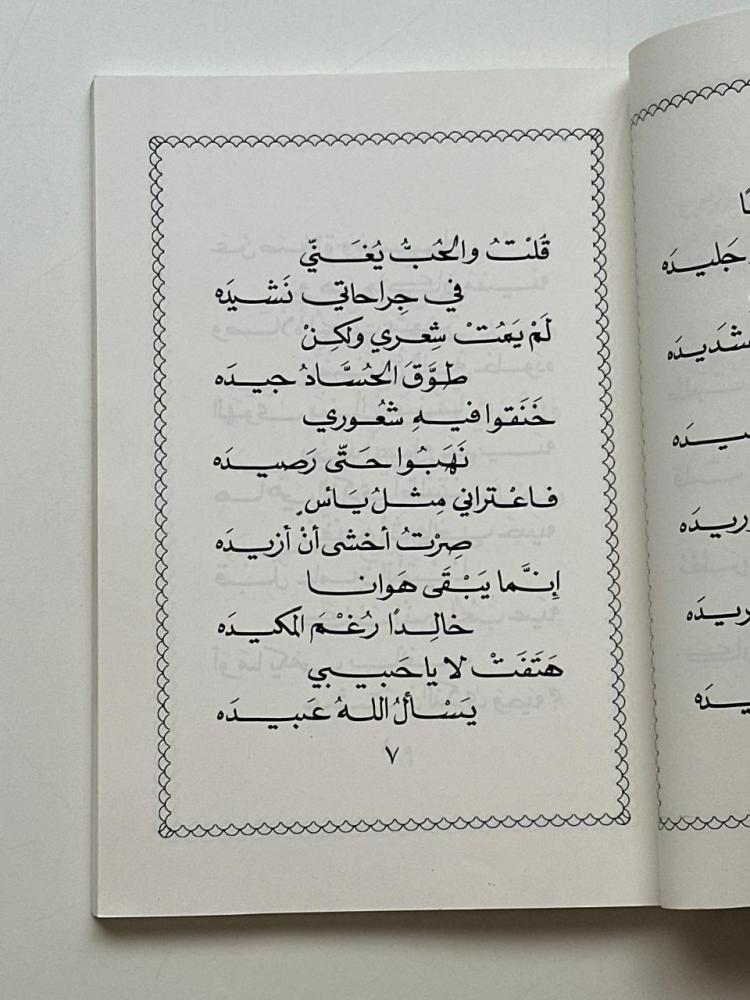 قُلْتُ والحُبُّ يُغَـنّي
في جِراحاتي نَشيدَه
لَمْ يَمُتْ شعري ولكِنْ
طوَّقَ الحُسَّادُ جيدَه
خَنَقوا فيهِ شعُوري
نَهَبُوا حَتّى رَصيدَه
فاعْتراني مِثلُ يَأسٍ
صِرْتُ أخشى أنْ أزيدَه
إنَّما يَبْقَى هَوانا
خالِدًا رُغْمَ المكيدَه
هَتَفَتْ لا يا حَبيبي
يَسْألُ اللهُ عَبيدَه
٧
جَليدَه
شَديدَه